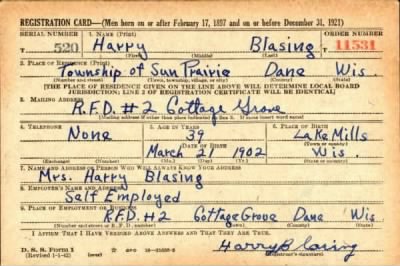 REGISTRATION CARD—(Men born on or after February 17, 1897 and on or before December 31, 1921)
SERIAL NUMBER 1. NAME (Print) ORDER NUMBER
T 520 Harry Blasing T 11531
(First) (Middle) (Last)
2. PLACE OF RESIDENCE (Print)
Township of Sun Prairie Dane Wis.
(Number and street) (Town, township, village, or city) (County) (State)
[THE PLACE OF RESIDENCE GIVEN ON THE LINE ABOVE WILL DETERMINE LOCAL BOARD
JURISDICTION; LINE 2 OF REGISTRATION CERTIFICATE WILL BE IDENTICAL]
3. MAILING ADDRESS
R.F.D. #2 Cottage Grove
[Mailing address if other than place indicated on line 2. If same insert word same]
4. TELEPHONE 5. AGE IN YEARS 6. PLACE OF BIRTH
None 39 Lake Mills
DATE OF BIRTH (Town or county)
March 21 1902 Wis.
(Exchange) (Number) (Mo.) (Day) (Yr.) (State or country)
7. NAME AND ADDRESS OF PERSON WHO WILL ALWAYS KNOW YOUR ADDRESS
Mrs. Harry Blasing
8. EMPLOYER'S NAME AND ADDRESS
Self Employed
9. PLACE OF EMPLOYMENT OR BUSINESS
R.F.D. #2 Cottage Grove Dane Wis
(Number and street or R. F. D. number) (Town) (County) (State)
I AFFIRM THAT I HAVE VERIFIED ABOVE ANSWERS AND THAT THEY ARE TRUE.
D. S. S. Form 1
(Revised 1-1-42) GPO Harry Blasing